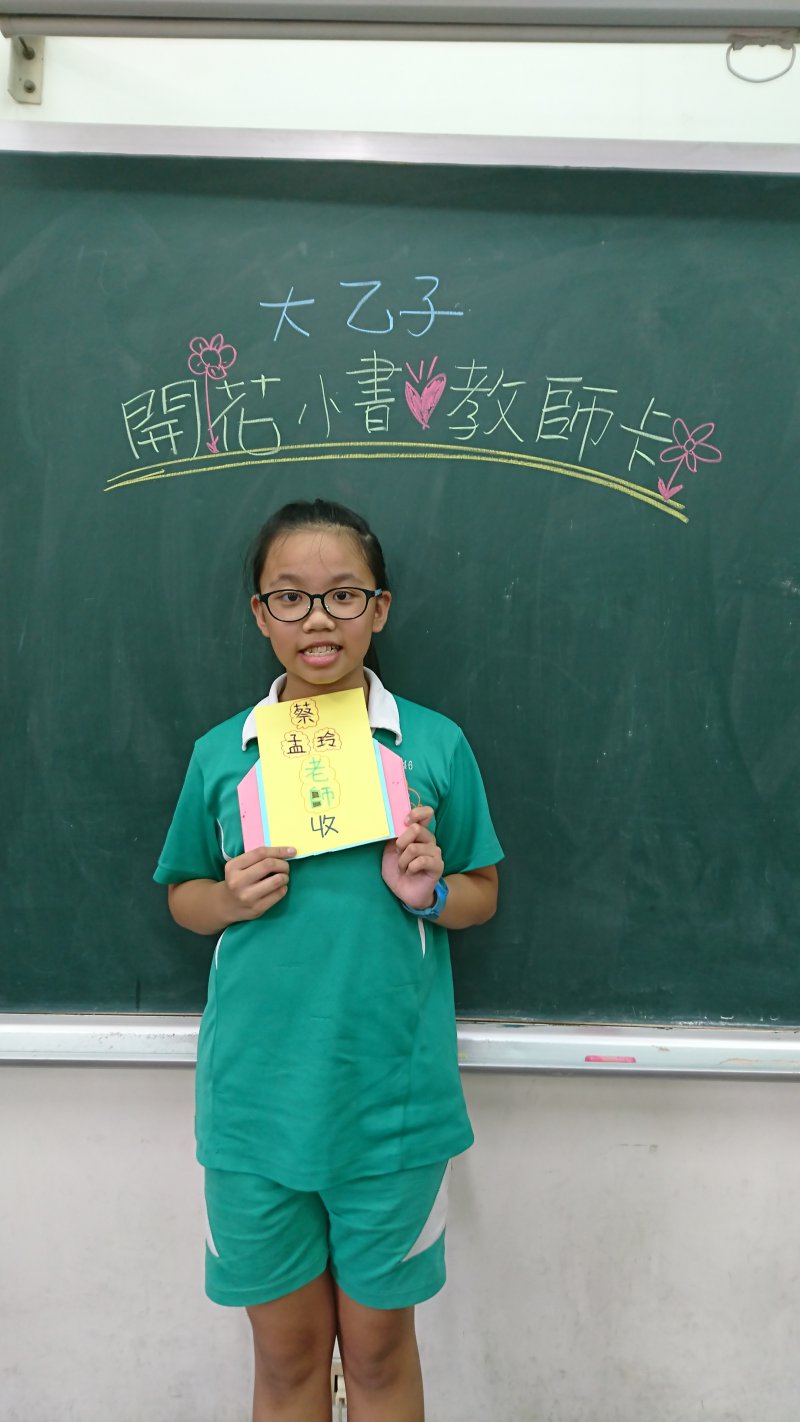 大乙子
開花小書教師卡
蔡
孟玲
老
師
收